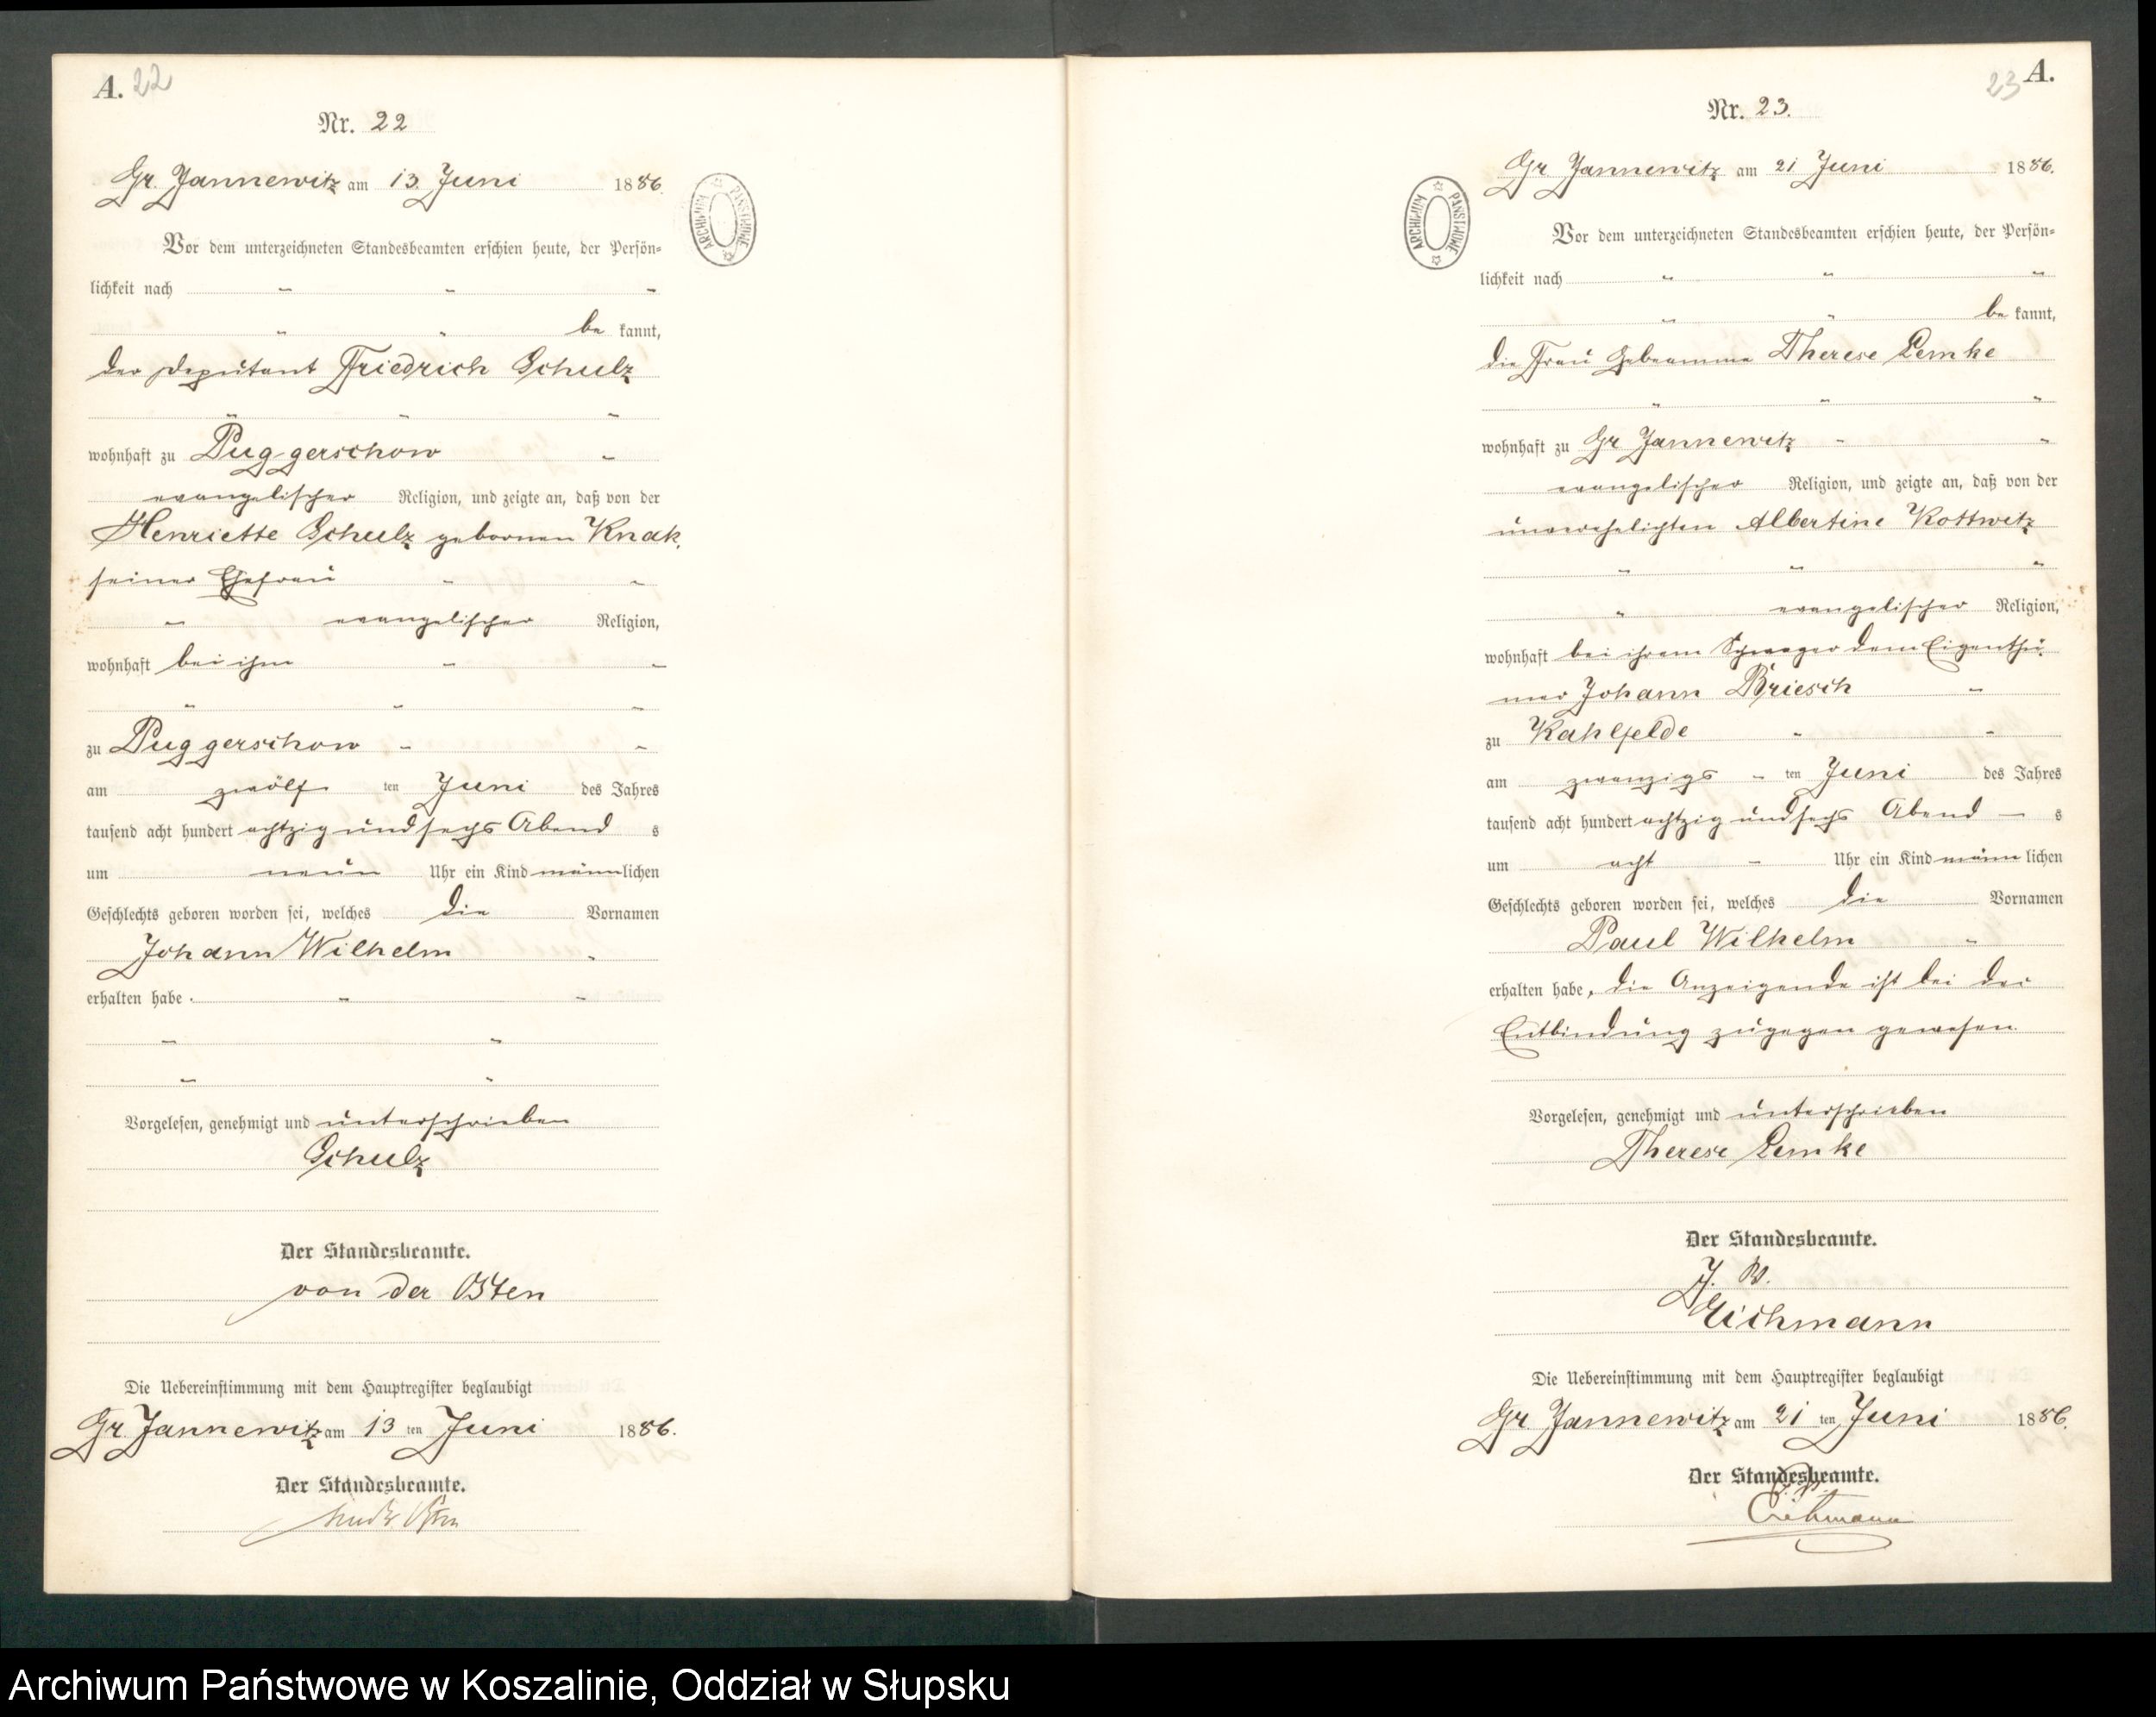 A. 22
Nr. 22
Gr. Jannewitz am 13. Juni 1886.
Vor dem unterzeichneten Standesbeamten erschien heute, der Persön-
lichkeit nach
be kannt,
der Deputant Friedrich Schulz
wohnhaft zu Puggerschow
evangelischer Religion, und zeigte an, daß von der
Henriette Schulz gebornen Knak,
seiner Ehefrau
evangelischer Religion,
wohnhaft bei ihm
zu Puggerschow
am zwölf ten Juni des Jahres
tausend acht hundert achtzig und sechs Abend s
um neun Uhr ein Kind männlichen
Geschlechts geboren worden sei, welches die Vornamen
Johann Wilhelm
erhalten habe.
Vorgelesen, genehmigt und unterschrieben
Schulz
Der Standesbeamte.
von der Osten
Die Uebereinstimmung mit dem Hauptregister beglaubigt
Gr. Jannewitz am 13 ten Juni 1886.
Der Standesbeamte.
von der Osten
23 A.
Nr. 23.
Gr. Jannewitz am 21 Juni 1886.
Vor dem unterzeichneten Standesbeamten erschien heute, der Persön-
lichkeit nach
be kannt,
die Frau Hebeamme Therese Lemke
wohnhaft zu Gr Jannewitz
evangelischer Religion, und zeigte an, daß von der
unverehelichten Albertine Kottwitz
evangelischer Religion,
wohnhaft bei ihrem Schwager dem Eigenthü-
mer Johann Briesch
zu Kahlfelde
am zwanzigs ten Juni des Jahres
tausend acht hundert achtzig und sechs Abend s
um acht Uhr ein Kind männlichen
Geschlechts geboren worden sei, welches die Vornamen
Paul Wilhelm
erhalten habe, die Anzeigende ist bei der
Entbindung zugegen gewesen.
Vorgelesen, genehmigt und unterschrieben
Therese Lemke
Der Standesbeamte.
J. V.
Eichmann
Die Uebereinstimmung mit dem Hauptregister beglaubigt
Gr. Jannewitz am 21 ten Juni 1886.
Der Standesbeamte.
J. V.
Eichmann
ARCHIWUM PAŃSTWOWE
ARCHIWUM PAŃSTWOWE
Archiwum Państwowe w Koszalinie, Oddział w Słupsku